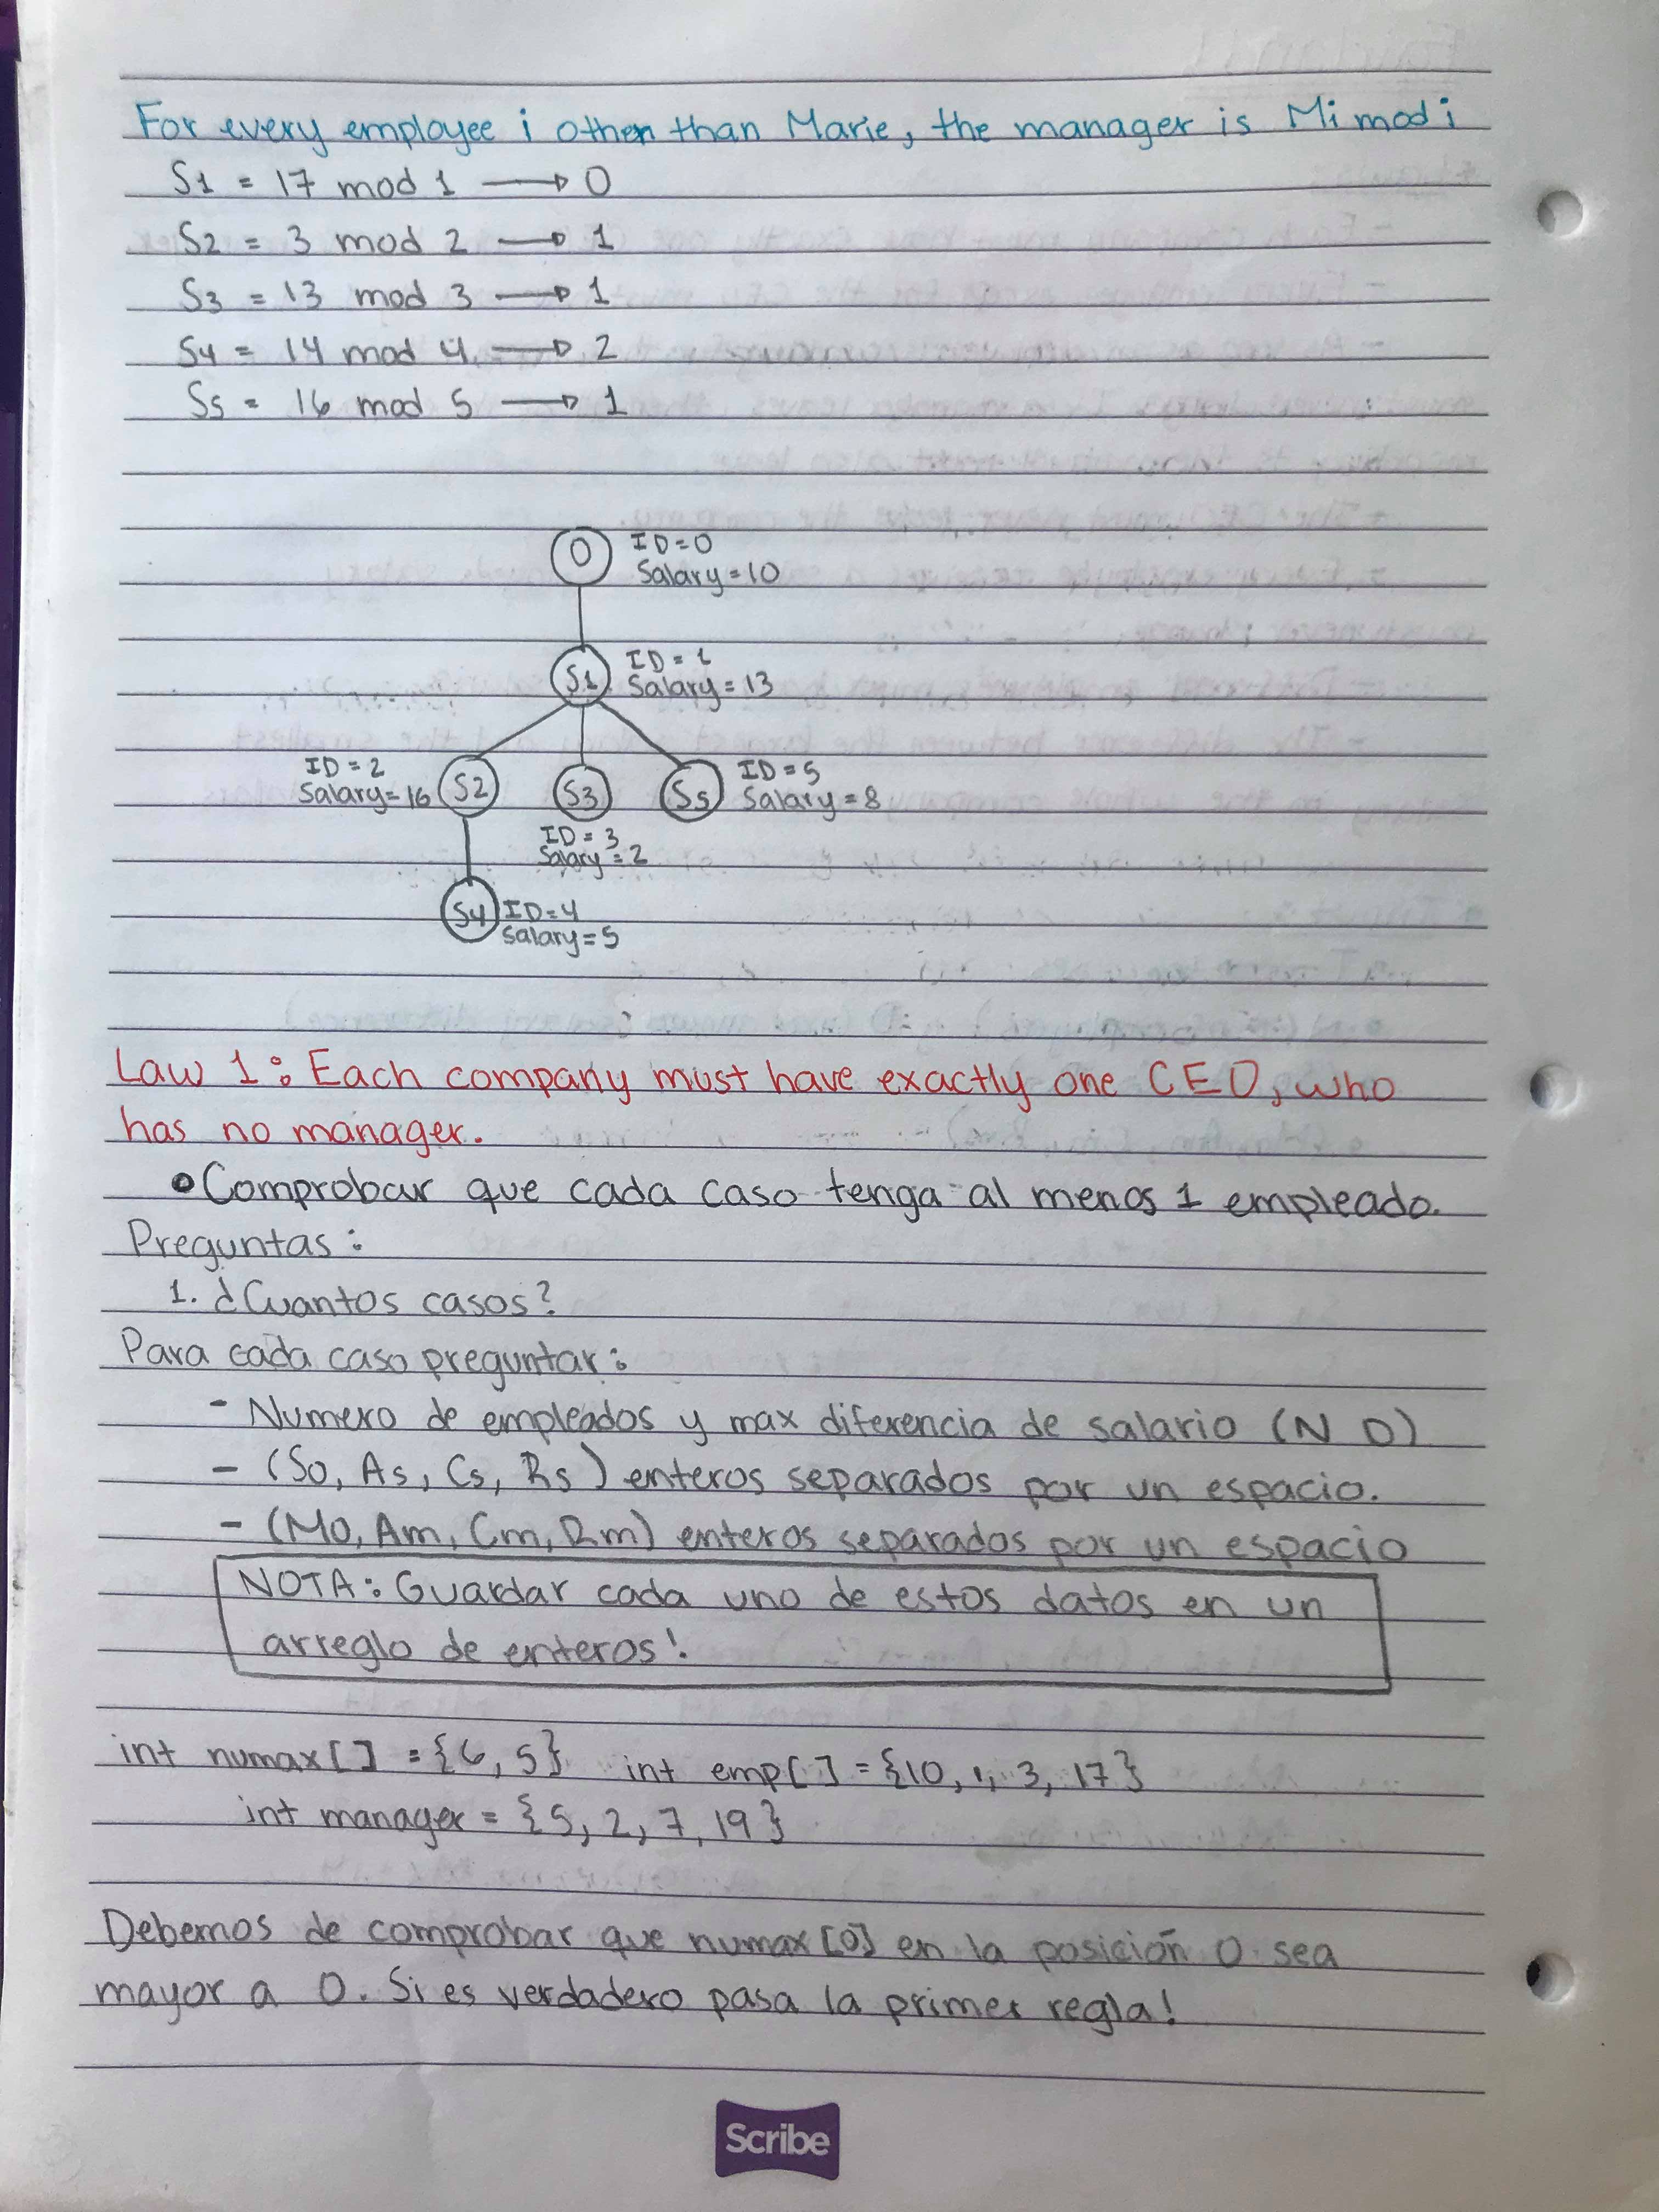 For every employee i other than Marie, the manager is Mi mod i
S1 = 17 mod 1 → 0
S2 = 3 mod 2 → 1
S3 = 13 mod 3 → 1
S4 = 14 mod 4 → 2
S5 = 16 mod 5 → 1
0 ID=0
Salary=10
S1 ID=1
Salary=13
ID=2
Salary=16 S2
S3
S5 ID=5
Salary=8
ID=3
Salary=2
S4 ID=4
Salary=5
Law 1: Each company must have exactly one CEO, who
has no manager.
• Comprobar que cada caso tenga al menos 1 empleado.
Preguntas:
1. ¿Cuantos casos?
Para cada caso preguntar:
- Numero de empleados y max diferencia de salario (N D)
- (So, As, Cs, Rs) enteros separados por un espacio.
- (Mo, Am, Cm, Rm) enteros separados por un espacio
NOTA: Guardar cada uno de estos datos en un
arreglo de enteros!
int numax[] = {6, 5} int emp[] = {10, 1, 3, 17}
int manager = {5, 2, 7, 19}
Debemos de comprobar que numax[0] en la posición 0 sea
mayor a 0. Si es verdadero pasa la primer regla!
Scribe